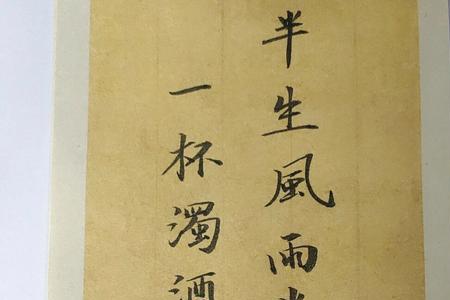 半生風雨
一杯濁酒